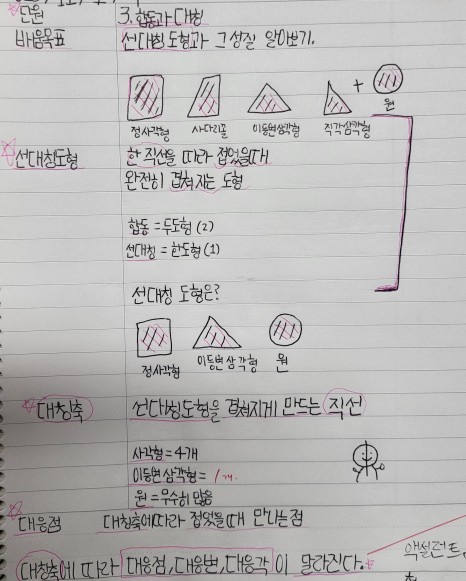 단원 3. 합동과 대칭
배움목표 선대칭도형과 그 성질 알아보기.
+
정사각형 사다리꼴 이등변삼각형 직각삼각형 원
선대칭도형 한 직선을 따라 접었을때
완전히 겹쳐지는 도형
합동 = 두도형 (2)
선대칭 = 한도형 (1)
선대칭 도형은?
정사각형 이등변삼각형 원
대칭축 선대칭도형을 겹쳐지게 만드는 직선
사각형 = 4개
이등변삼각형 = 1개.
원 = 무수히 많음
대응점 대칭축에따라 접었을때 만나는점
대칭축에 따라 대응점, 대응변, 대응각 이 달라진다.
액설런트